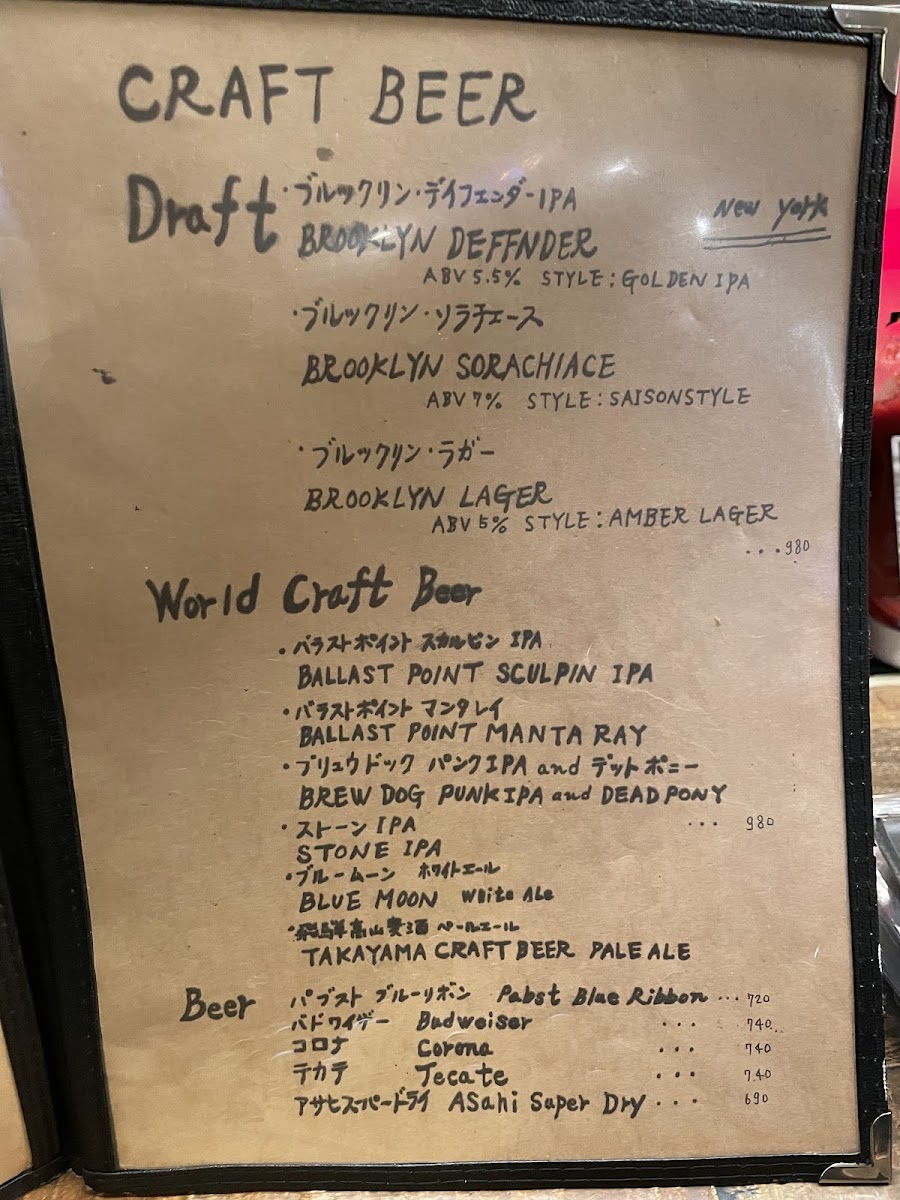 CRAFT BEER
Draft
・ブルックリン・デイフェンダーIPA
New York
BROOKLYN DEFFNDER
ABV 5.5% STYLE:GOLDEN IPA
・ブルックリン・ソラチエース
BROOKLYN SORACHIACE
ABV 7% STYLE:SAISONSTYLE
・ブルックリン・ラガー
BROOKLYN LAGER
ABV 5% STYLE:AMBER LAGER
...980
World Craft Beer
・バラストポイント スカルピン IPA
BALLAST POINT SCULPIN IPA
・バラストポイント マンタレイ
BALLAST POINT MANTA RAY
・ブリュウドック パンクIPA and デットポニー
BREW DOG PUNKIPA and DEAD PONY
・ストーン IPA ... 980
STONE IPA
・ブルームーン ホワイトエール
BLUE MOON White Ale
・飛騨高山麦酒 ペールエール
TAKAYAMA CRAFT BEER PALE ALE
Beer パブスト ブルーリボン Pabst Blue Ribbon ... 720
バドワイザー Budweiser ... 740
コロナ Corona ... 740
テカテ Tecate ... 740
アサヒスーパードライ ASahi Super Dry ... 690